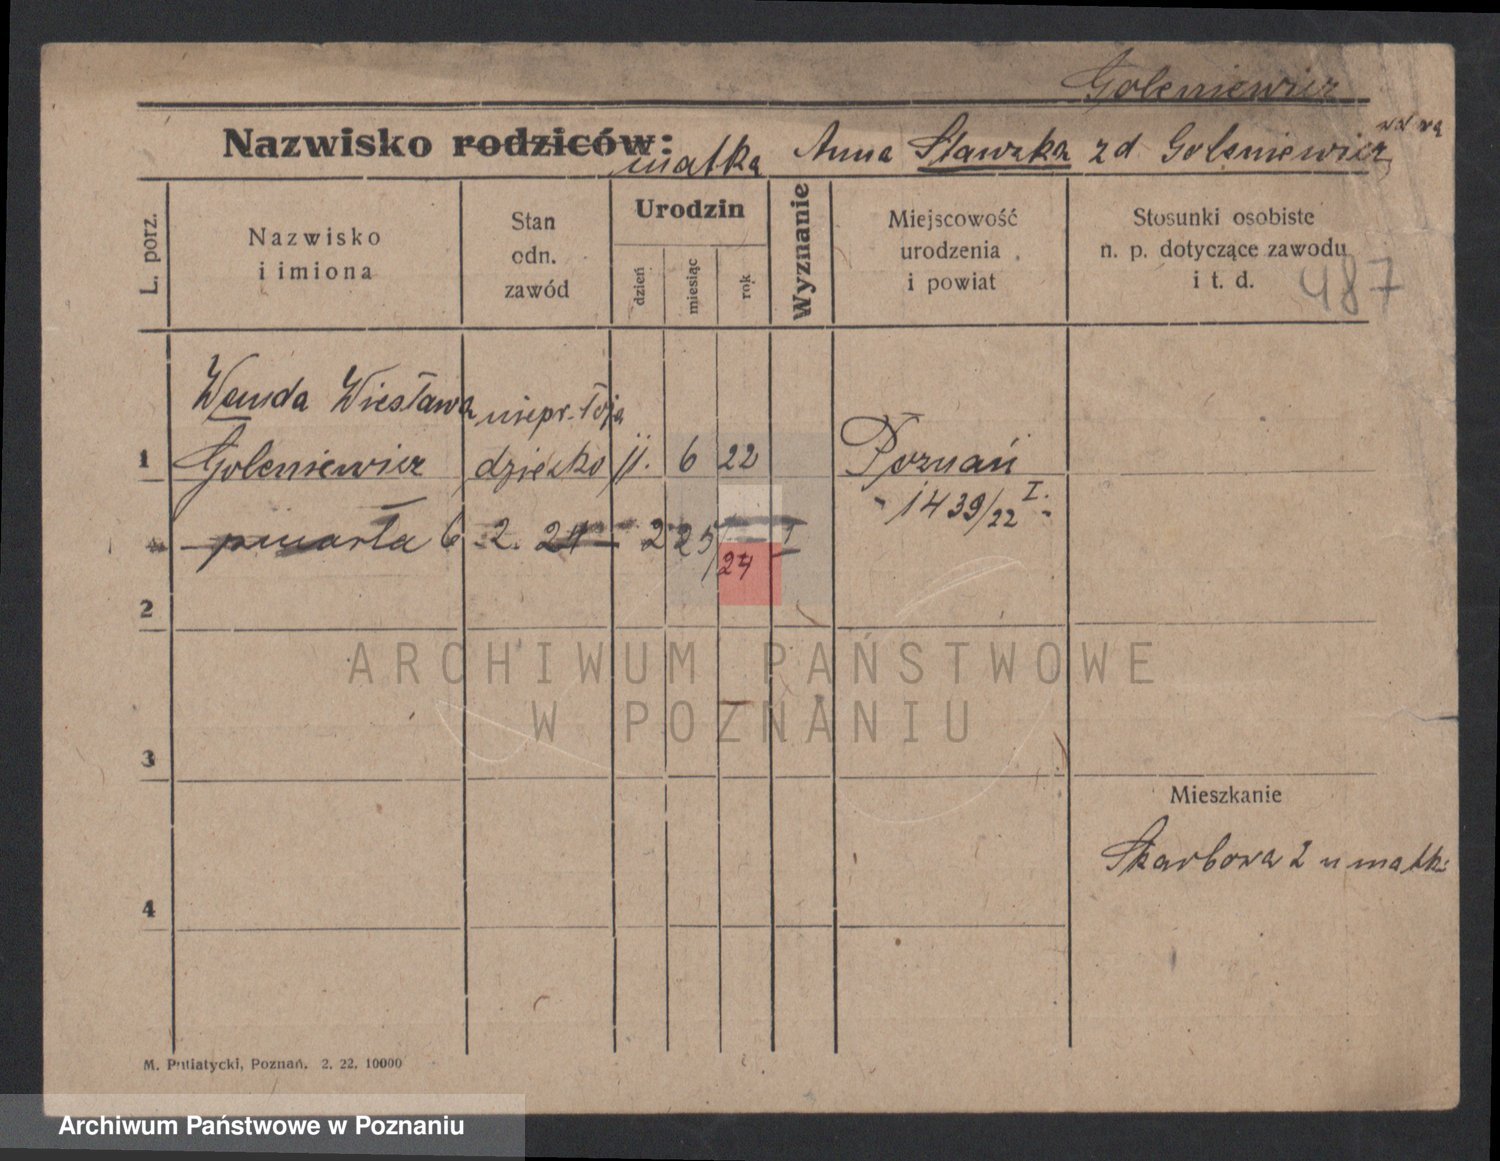 Goleniewicz
Nazwisko rodziców:
matka Anna Stawska zd Goleniewicz
L. porz.
Nazwisko
i imiona
Stan
odn.
zawód
Urodzin
dzień
miesiąc
rok
Wyznanie
Miejscowość
urodzenia
i powiat
Stosunki osobiste
n. p. dotyczące zawodu
i t. d.
487
Wanda Wiesława niepr. łoża
1 Goleniewicz dziecko 11. 6 22 Poznań
1439/22 I.
zmarła 6 2. 24 225/24 I
2
ARCHIWUM PAŃSTWOWE
W POZNANIU
3
Mieszkanie
Skarbowa 2 u matki
4
M. Putiatycki, Poznań. 2. 22. 10000
Archiwum Państwowe w Poznaniu